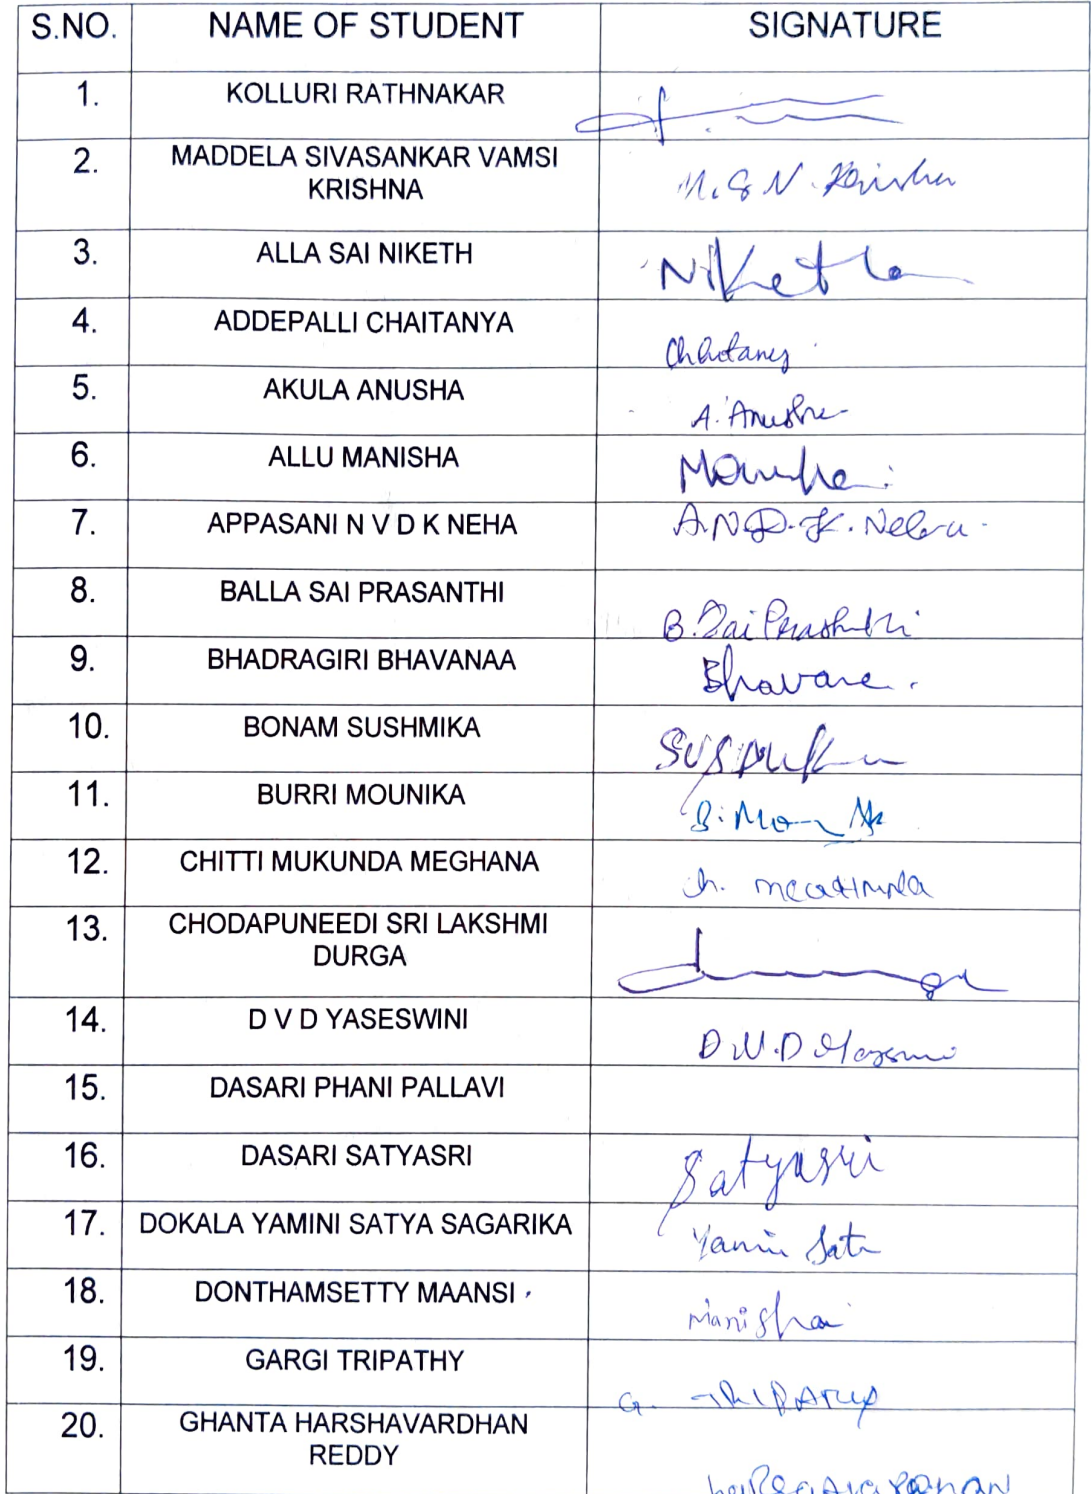 S.NO. NAME OF STUDENT SIGNATURE
1. KOLLURI RATHNAKAR
2. MADDELA SIVASANKAR VAMSI
KRISHNA M.S.V. Krishna
3. ALLA SAI NIKETH Niketh
4. ADDEPALLI CHAITANYA
5. AKULA ANUSHA A. Anusha
6. ALLU MANISHA Manisha
7. APPASANI N V D K NEHA A.N.D.K. Neha
8. BALLA SAI PRASANTHI B. Sai Prashanthi
9. BHADRAGIRI BHAVANAA Bhavana.
10. BONAM SUSHMIKA
11. BURRI MOUNIKA
12. CHITTI MUKUNDA MEGHANA
13. CHODAPUNEEDI SRI LAKSHMI
DURGA
14. D V D YASESWINI D.V.D
15. DASARI PHANI PALLAVI
16. DASARI SATYASRI Satyasri
17. DOKALA YAMINI SATYA SAGARIKA Yamini Satya
18. DONTHAMSETTY MAANSI
19. GARGI TRIPATHY G. TRIPATHY
20. GHANTA HARSHAVARDHAN
REDDY